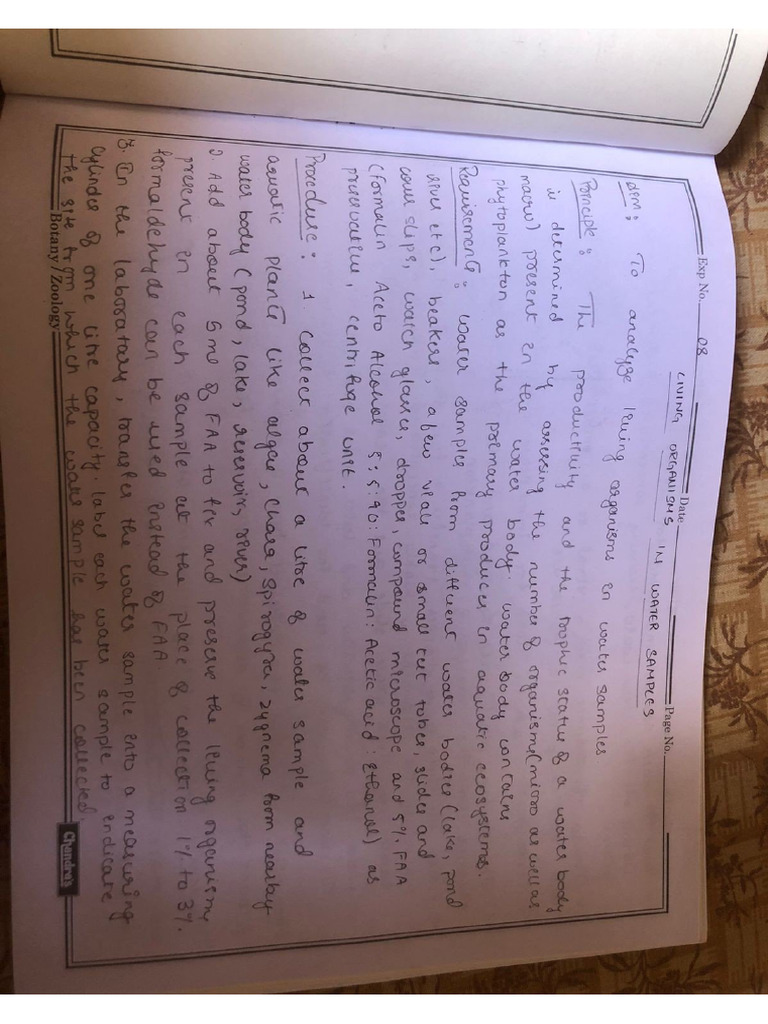 Exp No. 08
Date
Page No.
LIVING ORGANISMS IN WATER SAMPLES
Aim: To analyze living organisms in water samples
Principle: The productivity and the trophic status of a water body
is determined by assessing the number of organisms (micro as well as
macro) present in the water body. water body contains
phytoplankton as the primary producer in aquatic ecosystems.
Requirements: water samples from different water bodies (lake, pond
river etc), beakers, a few vials or small test tubes, slides and
cover slips, watch glasses, dropper, compound microscope and 5% FAA
(Formalin Aceto Alcohol 5:5:90:: Formalin: Acetic acid: Ethanol) as
preservative, centrifuge unit.
Procedure: 1. Collect about a litre of water sample and
aquatic plants like algae, chara, spirogyra, zygnema from nearby
water body (pond, lake, reservoir, river)
2. Add about 5 ml of FAA to fix and preserve the living organisms
present in each sample at the place of collection 1% to 3%
formaldehyde can be used instead of FAA.
3. In the laboratory, transfer the water sample into a measuring
cylinder of one litre capacity. label each water sample to indicate
the site from which the water sample has been collected.
Botany / Zoology
Chandra's